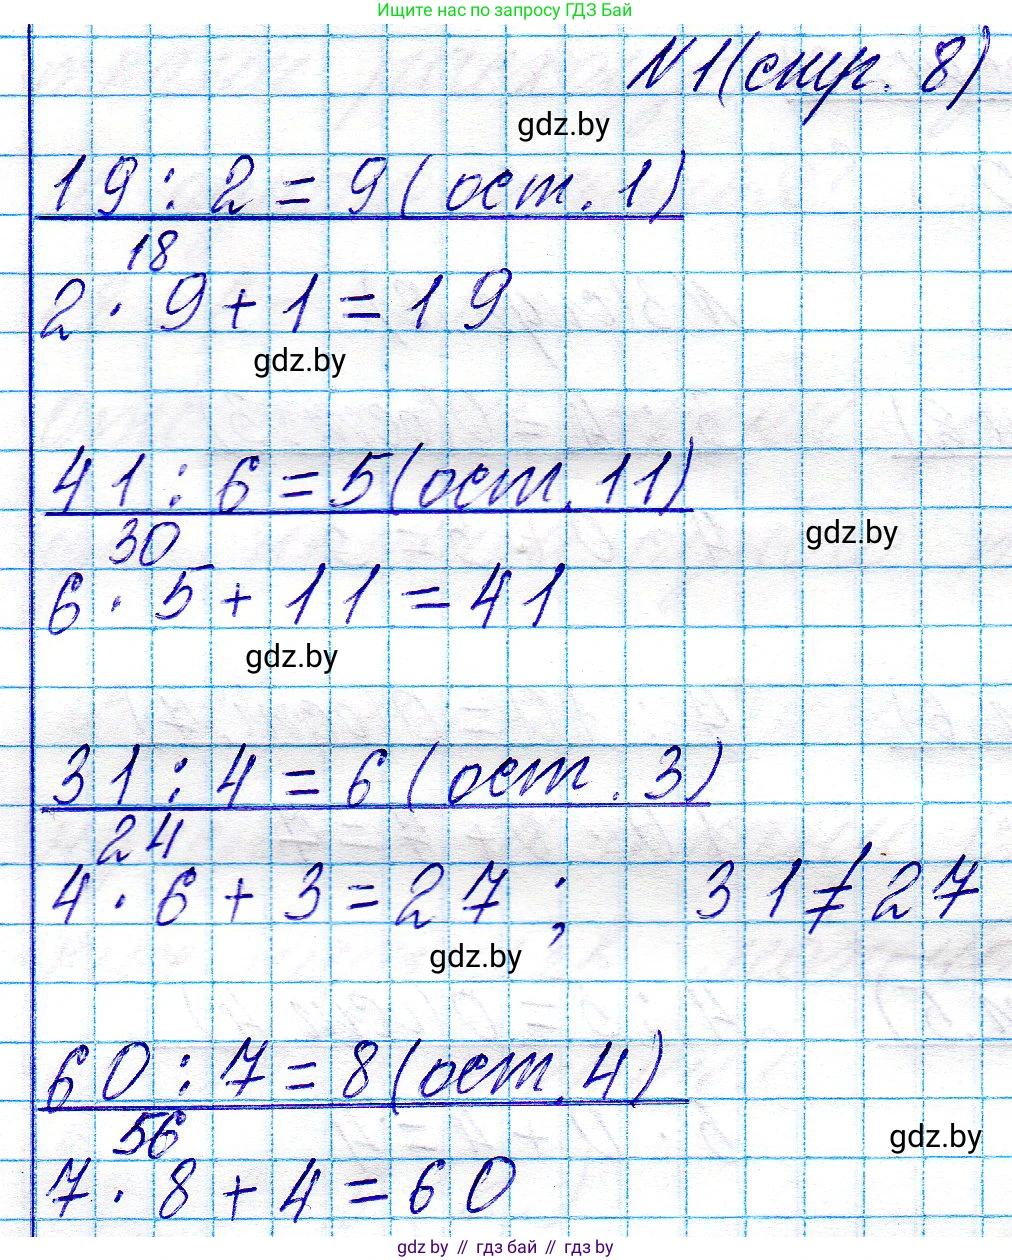 Ищите нас по запросу ГДЗ Бай
N1(стр. 8)
gdz.by
19 : 2 = 9 ( ост. 1)
18
2 · 9 + 1 = 19
gdz.by
41 : 6 = 5 (ост. 11)
gdz.by
30
6 · 5 + 11 = 41
gdz.by
31 : 4 = 6 ( ост. 3)
24
4 · 6 + 3 = 27 ; 31 ≠ 27
gdz.by
60 : 7 = 8 (ост. 4)
56
gdz.by
7 · 8 + 4 = 60
gdz by // гдз бай // гдз by